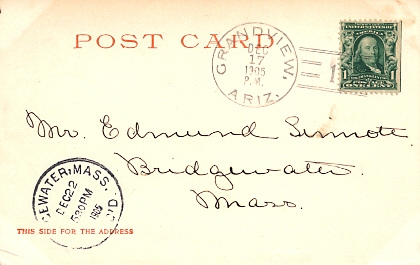 POST CARD
GRANDVIEW,
DEC
17
1905
P.M.
ARIZ.
1
1
ONE CENT
Mr. Edmund Sinnote
Bridgewater
Mass.
GEWATER, MASS.
DEC 22
530 PM
1905
THIS SIDE FOR THE ADDRESS